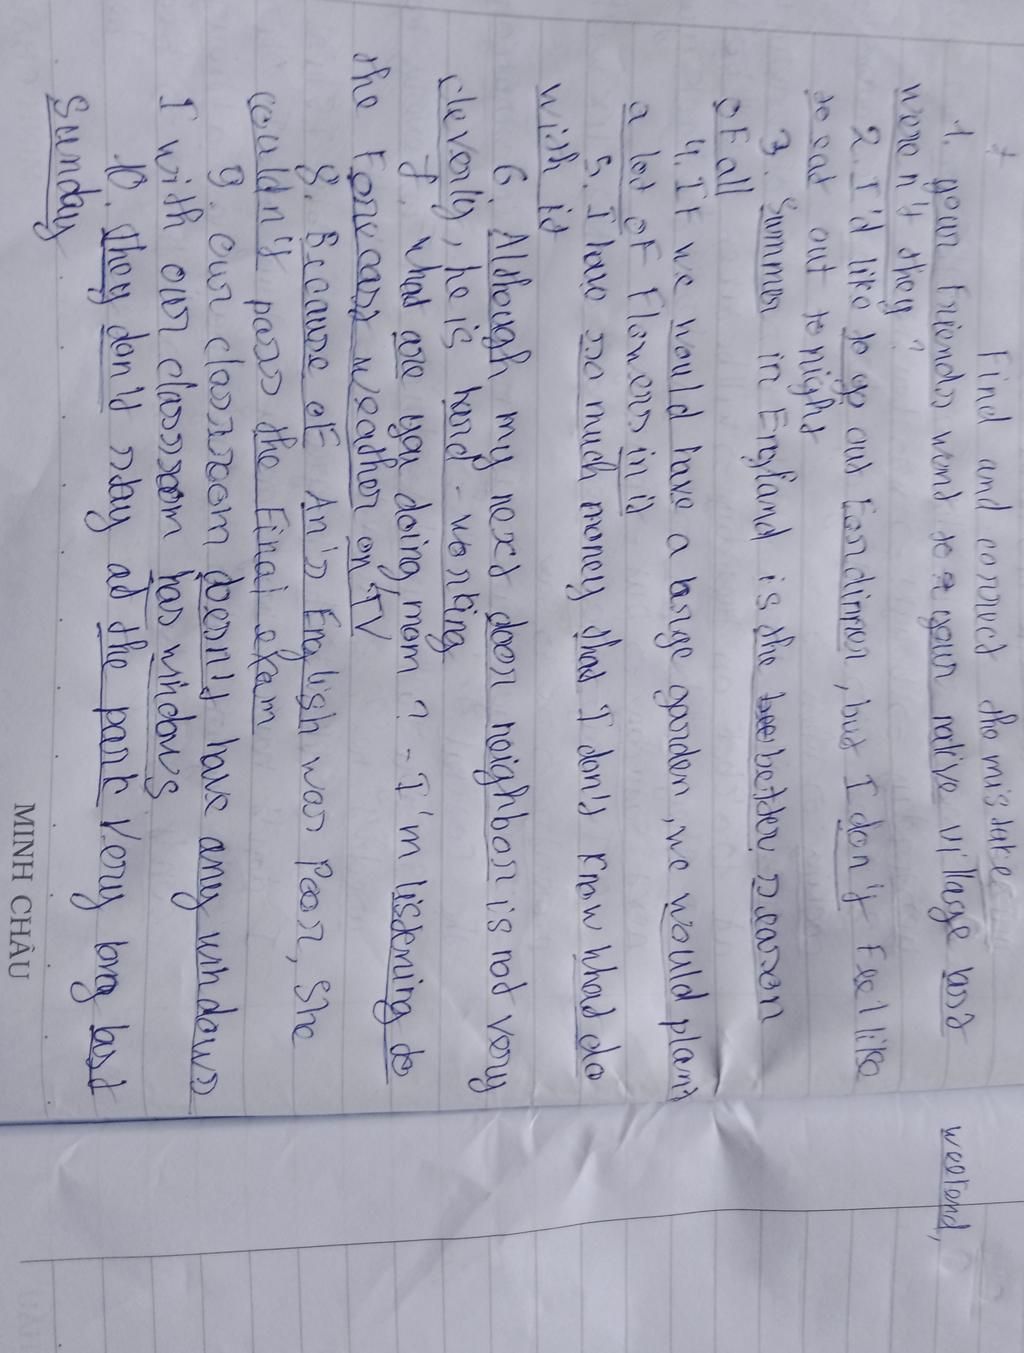 Find and correct the mistake
1. your friends went to your native village last weekend,
weren't they?
2. I'd like to go out for dinner, but I don't feel like
to eat out tonight
3. Summer in England is the better season
of all
4. If we would have a large garden, we would plant
a lot of flowers in it
5. I have so much money that I don't know what do
with it
6. Although my next door neighbor is not very
cleverly, he is hard-working
7. what are you doing, mom? - I'm listening to
the forecast weather on TV
8. Because of An's English was poor, she
couldn't pass the final exam
9. our classroom doesn't have any windows
I with our classroom has windows
10. they don't stay at the park very long last
Sunday
MINH CHÂU